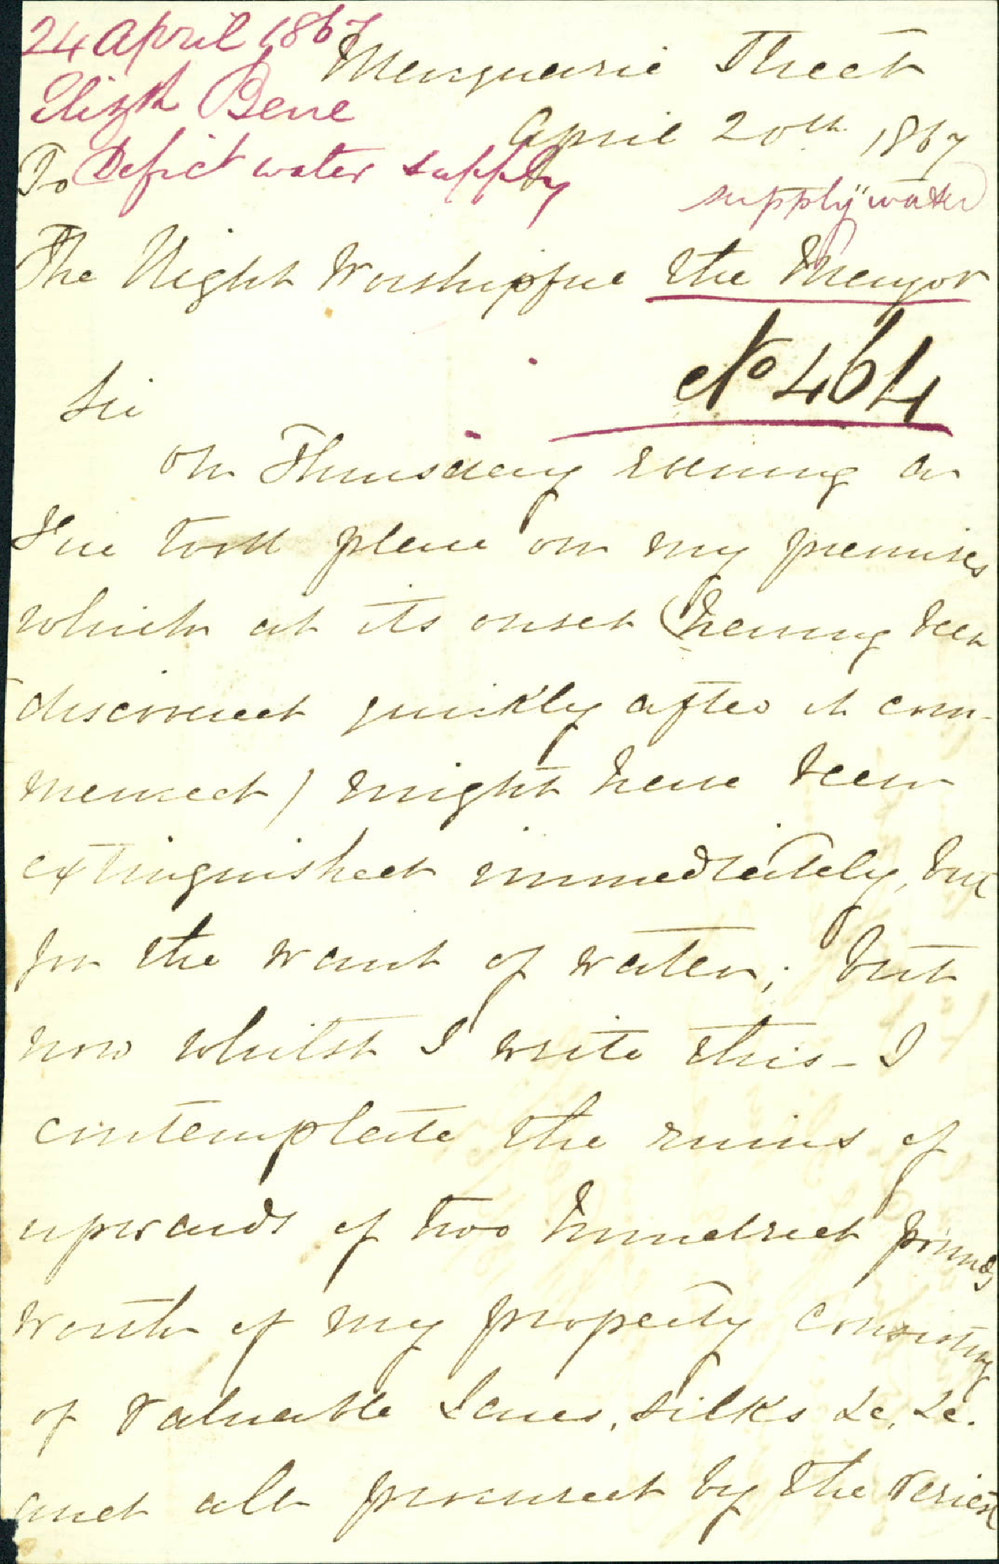 24 April 1867
Macquarie Street
Elizth Bene
April 20th 1867
To
Defict water supply
supply "water
The Right Worshipful the Mayor
No 464
Sir
On Thursday evening a
Fire took place on my premises
which at its onset (having been
discovered quickly after it com-
menced) might have been
extinguished immediately, but
for the want of water; but
now whilst I write this - I
contemplate the ruins of
upwards of two hundred pounds
worth of my property consisting
of valuable Laces, silks &c, &c.
and all procured by the